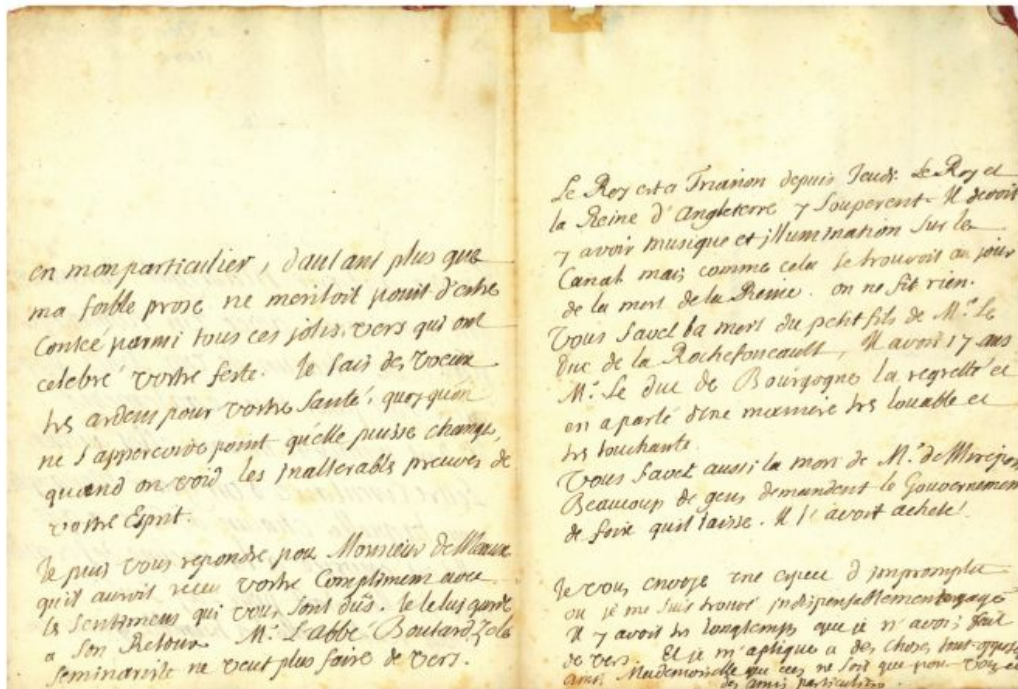 en mon particulier, d'autant plus que
ma foible prose ne meritoit point d'estre
Contée parmi tous ces jolis vers qui ont
celebré vostre feste. Je fais des voeux
trs ardens pour vostre Santé, quoy qu'on
ne s'appercoive point qu'elle puisse changer,
quand on void les inalterables preuves de
vostre Esprit.
Je puis vous repondre pour Monsieur de Meaux
qu'il auroit receu vostre Compliment avec
ls sentimens qui vous sont dûs. Je le luy garde
a Son Retour. Mr. L'abbé Boutard
Seminariste ne veut plus faire de vers.
Le Roy est a Trianon depuis Jeudi. Le Roy et
la Reine d'Angleterre y Souperent. Il devoit
y avoir musique et jllumination Sur le
Canal mais comme cela se trouvoit au jour
de la mort de la Reine. on ne fit rien.
Vous Savez la mort du petit fils de Mr. Le
Duc de la Rochefoucault, Il avoit 17 ans
Mr. Le duc de Bourgogne la regretté et
en a parlé d'une maniere trs louable et
trs touchante.
Vous Savez aussi la mort de Mr. de Mirepoix
Beaucoup de gens demandent le Gouvernement
de foix quil laisse. Il l'avoit acheté.
Je vous envoye une espece d'jmpromptu
ou je me suis trouvé jndispensablement engagé
Il y avoit trs longtemps que je n'avois fait
de vers. Et je m'aplique a des choses tout opposées
ainsi Mademoiselle que ces ne soit que pour vous et
des amis particuliers.